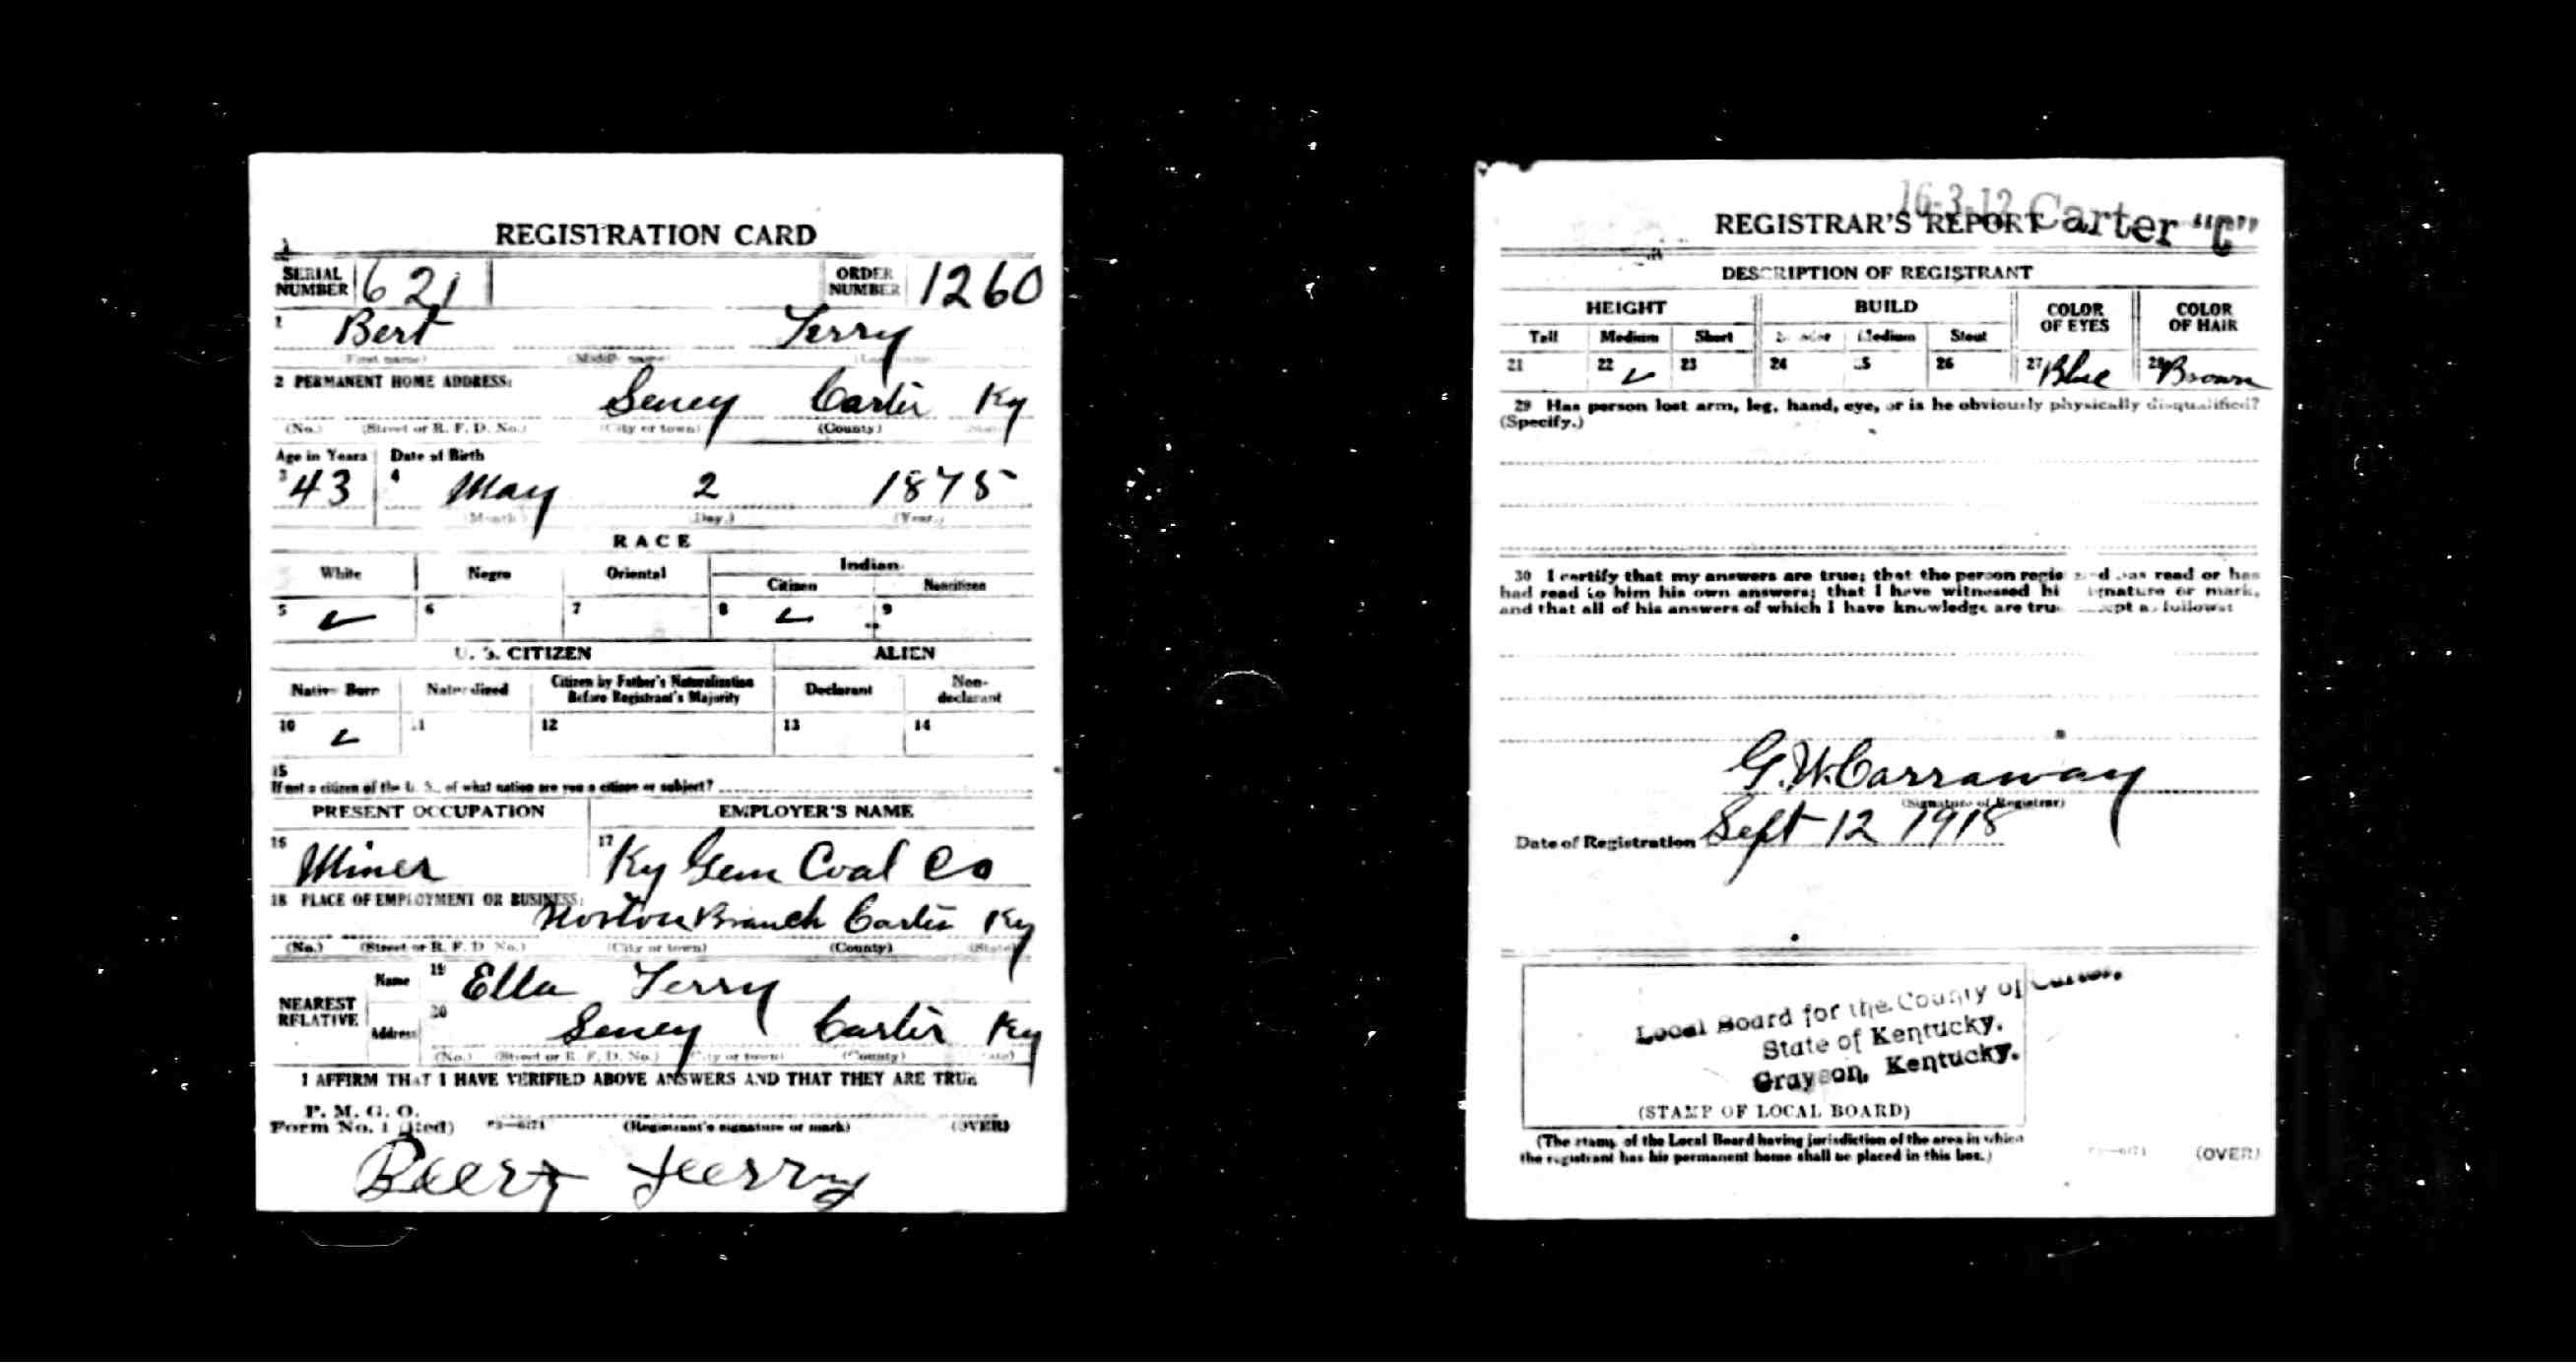 REGISTRATION CARD
SERIAL NUMBER 621 ORDER NUMBER 1260
1 Bert Terry
(First name) (Middle name) (Last name)
2 PERMANENT HOME ADDRESS:
Seney Carter Ky
(No.) (Street or R. F. D. No.) (City or town) (County) (State)
Age in Years Date of Birth
3 43 4 May 2 1875
(Month) (Day.) (Year.)
RACE
White Negro Oriental Indian
Citizen Noncitizen
5 ✓ 6 7 8 ✓ 9
U. S. CITIZEN ALIEN
Native Born Naturalized Citizen by Father's Naturalization Before Registrant's Majority Declarant Non-declarant
10 ✓ 11 12 13 14
15
If not a citizen of the U. S., of what nation are you a citizen or subject?
PRESENT OCCUPATION EMPLOYER'S NAME
16 Miner 17 Ky Gem Coal Co
18 PLACE OF EMPLOYMENT OR BUSINESS:
Norton Branch Carter Ky
(No.) (Street or R. F. D. No.) (City or town) (County) (State)
NEAREST RELATIVE Name 19 Ella Terry
Address 20 Seney Carter Ky
(No.) (Street or R. F. D. No.) (City or town) (County) (State)
I AFFIRM THAT I HAVE VERIFIED ABOVE ANSWERS AND THAT THEY ARE TRUE
P. M. G. O.
Form No. 1 (Red) (Registrant's signature or mark) (OVER)
Beert Teerry
16-3-12 Carter "C"
REGISTRAR'S REPORT
DESCRIPTION OF REGISTRANT
HEIGHT BUILD COLOR OF EYES COLOR OF HAIR
Tall Medium Short Slender Medium Stout
21 22 ✓ 23 24 25 26 27 Blue 28 Brown
29 Has person lost arm, leg, hand, eye, or is he obviously physically disqualified?
(Specify.)
30 I certify that my answers are true; that the person registered has read or has
had read to him his own answers; that I have witnessed his signature or mark,
and that all of his answers of which I have knowledge are true, except as follows:
G. W. Carraway
(Signature of Registrar)
Date of Registration Sept 12 1918
Local Board for the County of Carter,
State of Kentucky.
Grayson, Kentucky.
(STAMP OF LOCAL BOARD)
(The stamp of the Local Board having jurisdiction of the area in which
the registrant has his permanent home shall be placed in this box.)
(OVER)